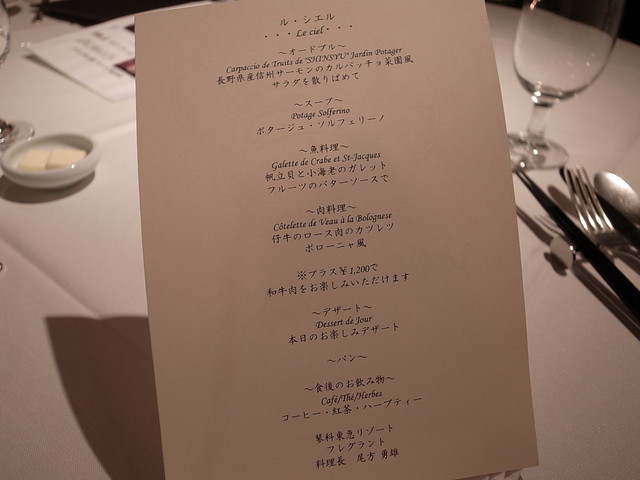 ル・シエル
・・・Le ciel・・・
～オードブル～
Carpaccio de Truits de "SHINSYU" Jardin Potager
長野県産信州サーモンのカルパッチョ菜園風
サラダを散りばめて
～スープ～
Potage Solferino
ポタージュ・ソルフェリーノ
～魚料理～
Galette de Crabe et St-Jacques
帆立貝と小海老のガレット
フルーツのバターソースで
～肉料理～
Côtelette de Veau à la Bolognese
仔牛のロース肉のカツレツ
ボローニャ風
※プラス¥1,200で
和牛肉をお楽しみいただけます
～デザート～
Dessert de Jour
本日のお楽しみデザート
～パン～
～食後のお飲み物～
Café/Thé/Herbes
コーヒー・紅茶・ハーブティー
蓼科東急リゾート
フレグラント
料理長　尾方 勇雄